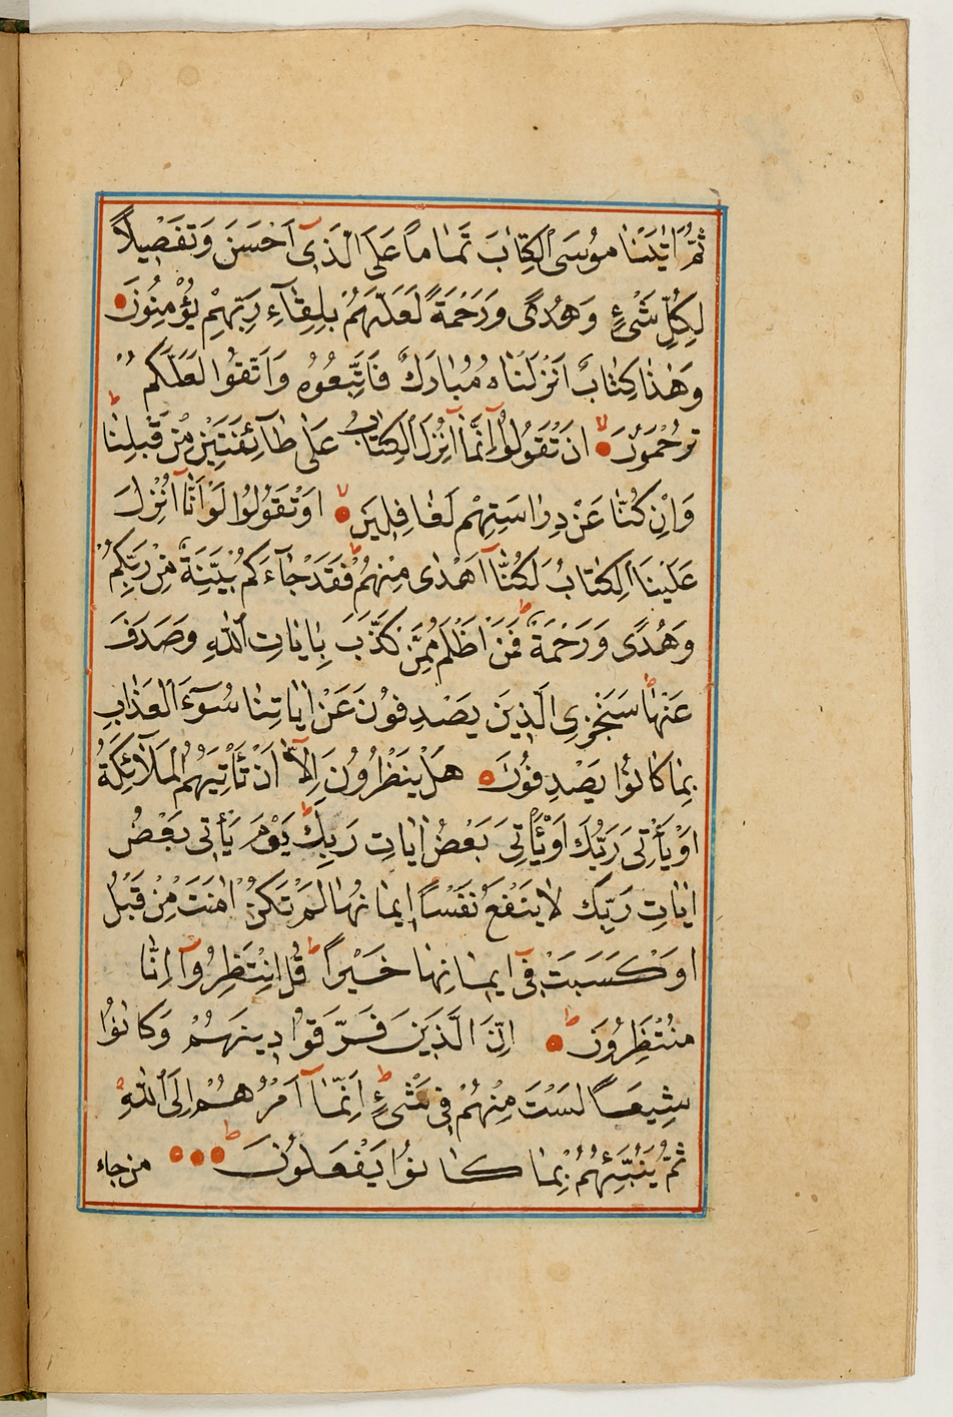 ثُمَّ اٰتَيْنَا مُوسَى الْكِتَابَ تَمَامًا عَلَى الَّذِىٓ اَحْسَنَ وَتَفْصِيلًا
لِكُلِّ شَىْءٍ وَهُدًى وَرَحْمَةً لَعَلَّهُمْ بِلِقَآءِ رَبِّهِمْ يُؤْمِنُونَ
وَهٰذَا كِتَابٌ اَنْزَلْنَاهُ مُبَارَكٌ فَاتَّبِعُوهُ وَاتَّقُوا لَعَلَّكُمْ
تُرْحَمُونَ اَنْ تَقُولُوٓا اِنَّمَٓا اُنْزِلَ الْكِتَابُ عَلٰى طَآئِفَتَيْنِ مِنْ قَبْلِنَا
وَاِنْ كُنَّا عَنْ دِرَاسَتِهِمْ لَغَافِلِينَ اَوْ تَقُولُوا لَوْ اَنَّٓا اُنْزِلَ
عَلَيْنَا الْكِتَابُ لَكُنَّٓا اَهْدٰى مِنْهُمْ فَقَدْ جَآءَكُمْ بَيِّنَةٌ مِنْ رَبِّكُمْ
وَهُدًى وَرَحْمَةٌ فَمَنْ اَظْلَمُ مِمَّنْ كَذَّبَ بِاٰيَاتِ اللّٰهِ وَصَدَفَ
عَنْهَا سَنَجْزِى الَّذِينَ يَصْدِفُونَ عَنْ اٰيَاتِنَا سُوٓءَ الْعَذَابِ
بِمَا كَانُوا يَصْدِفُونَ هَلْ يَنْظُرُونَ اِلَّٓا اَنْ تَأْتِيَهُمُ الْمَلٰٓئِكَةُ
اَوْ يَأْتِىَ رَبُّكَ اَوْ يَأْتِىَ بَعْضُ اٰيَاتِ رَبِّكَ يَوْمَ يَأْتِى بَعْضُ
اٰيَاتِ رَبِّكَ لَا يَنْفَعُ نَفْسًا اِيمَانُهَا لَمْ تَكُنْ اٰمَنَتْ مِنْ قَبْلُ
اَوْ كَسَبَتْ فِىٓ اِيمَانِهَا خَيْرًا قُلِ انْتَظِرُوٓا اِنَّا
مُنْتَظِرُونَ اِنَّ الَّذِينَ فَرَّقُوا دِينَهُمْ وَكَانُوا
شِيَعًا لَسْتَ مِنْهُمْ فِى شَىْءٍ اِنَّمَٓا اَمْرُهُمْ اِلَى اللّٰهِ
ثُمَّ يُنَبِّئُهُمْ بِمَا كَانُوا يَفْعَلُونَ من جاء